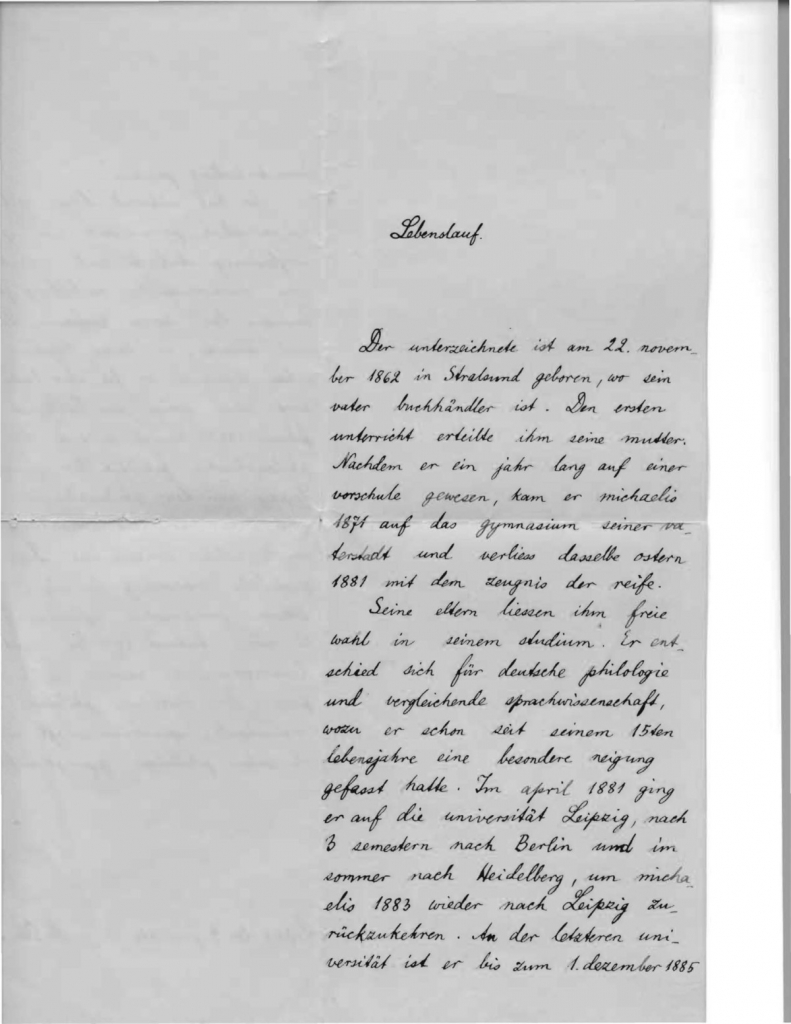 Lebenslauf.
Der unterzeichnete ist am 22. novem-
ber 1862 in Stralsund geboren, wo sein
vater buchhändler ist. Den ersten
unterricht erteilte ihm seine mutter.
Nachdem er ein jahr lang auf einer
vorschule gewesen, kam er michaelis
1871 auf das gymnasium seiner va-
terstadt und verliess dasselbe ostern
1881 mit dem zeugnis der reife.
Seine eltern liessen ihm freie
wahl in seinem studium. Er ent-
schied sich für deutsche philologie
und vergleichende sprachwissenschaft,
wozu er schon seit seinem 15ten
lebensjahre eine besondere neigung
gefasst hatte. Im april 1881 ging
er auf die universität Leipzig, nach
3 semestern nach Berlin und im
sommer nach Heidelberg, um micha-
elis 1883 wieder nach Leipzig zu-
rückzukehren. An der letzteren uni-
versität ist er bis zum 1. dezember 1885